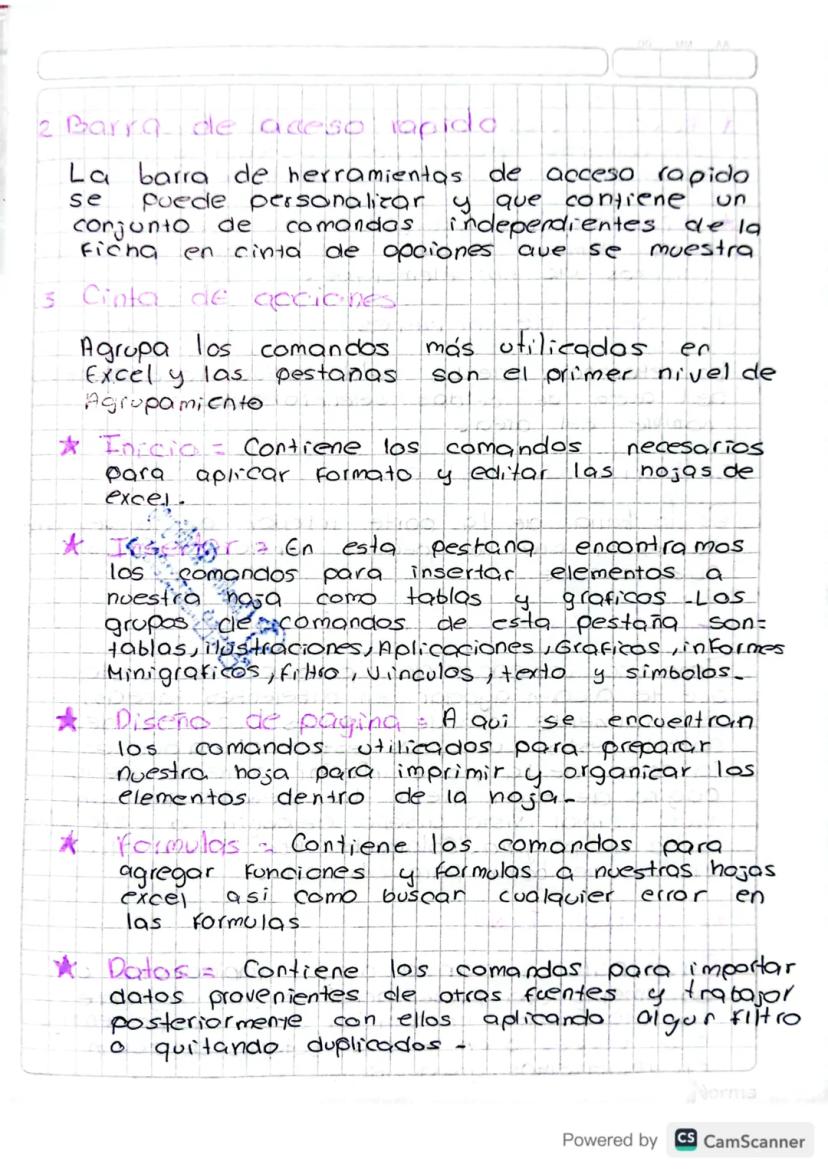 2 Barra de acceso rapido
La barra de herramientas de acceso rapido
se puede personalizar y que contiene un
conjunto de comandos independientes de la
ficha en cinta de opciones que se muestra
3 Cinta de acciones
Agrupa los comandos más utilizados en
Excel y las pestañas son el primer nivel de
Agrupamiento
★ Inicio = Contiene los comandos necesarios
para aplicar formato y editar las hojas de
excel.
★ Insertar = En esta pestana encontramos
los comandos para insertar elementos a
nuestra hoja como tablas y graficos - Los
grupos de comandos de esta pestaña son=
tablas, ilustraciones, Aplicaciones, Graficos, informes
Minigraficos, filtro, vinculos, texto y simbolos.
★ Diseño de pagina = A qui se encuentran
los comandos utilicados para preparar
nuestra hoja para imprimir y organicar los
elementos dentro de la hoja-
★ Formulas = Contiene los comandos para
agregar funciones y formulas a nuestras hojas
excel asi como buscar cualquier error en
las formulas
★ Datos = Contiene los comandos para importar
datos provenientes de otras fuentes y trabajar
posteriormente con ellos aplicando algun filtro
o quitando duplicados -
Norma
Powered by CS CamScanner